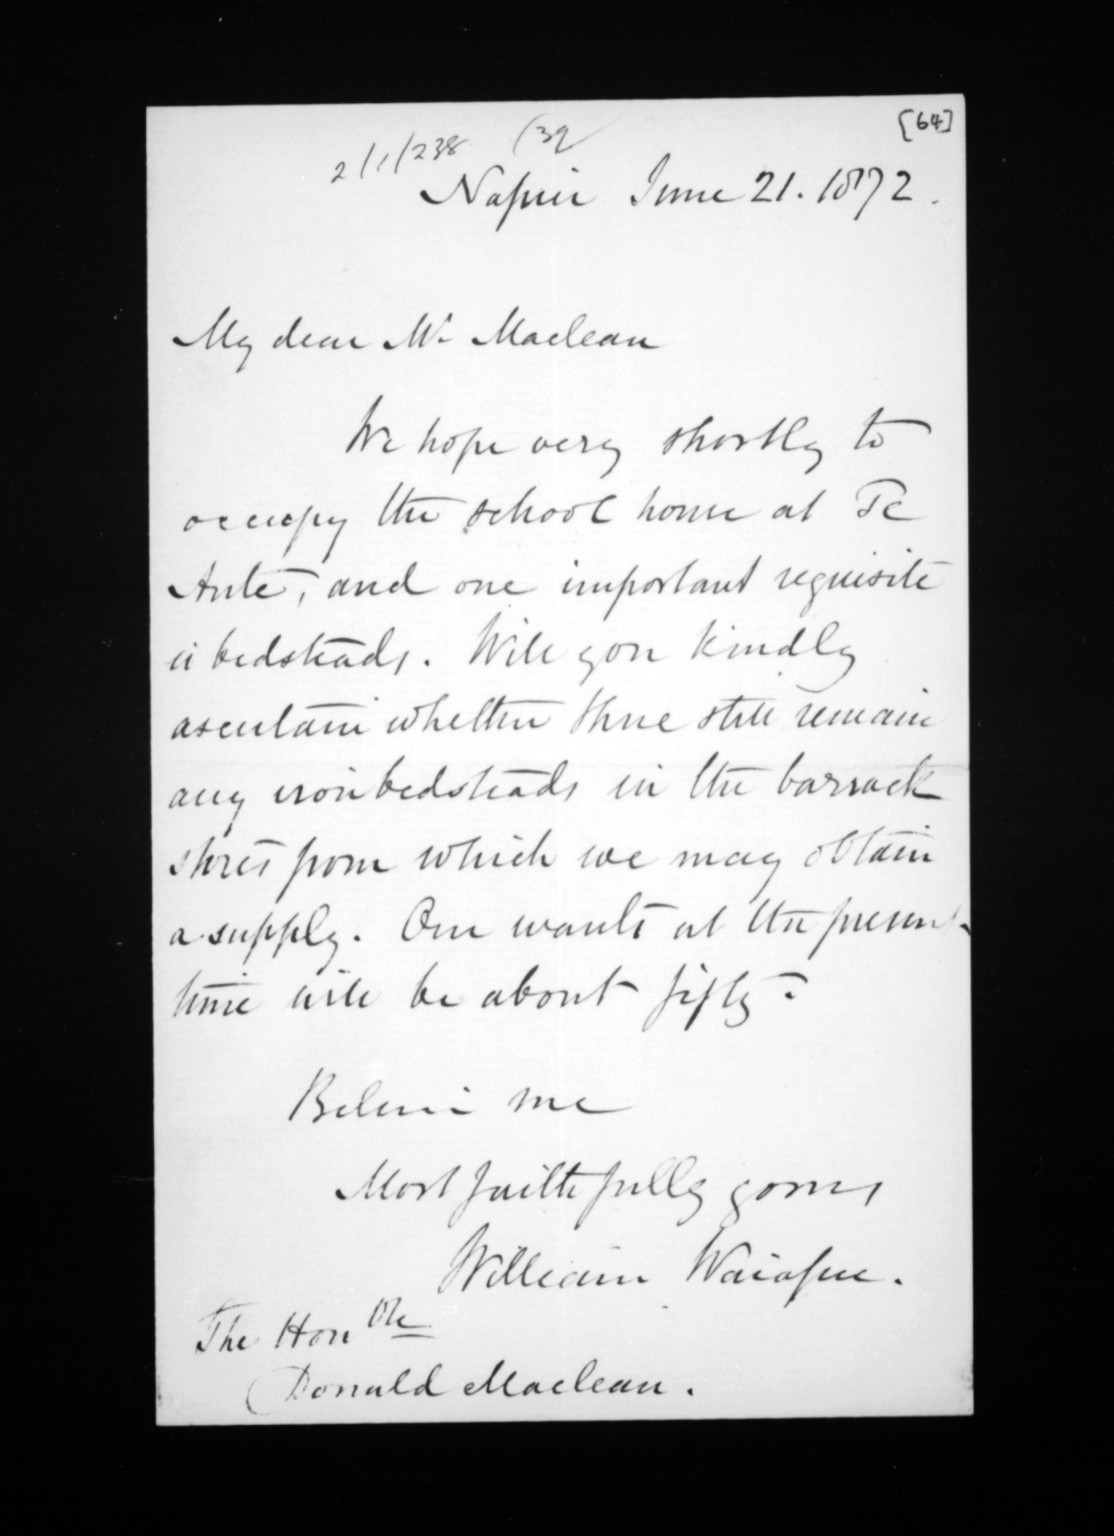 [64]
2/1/238 (39
Napier June 21. 1872.
My dear Mr Maclean
We hope very shortly to
occupy the school house at Te
Aute, and one important requisite
is bedsteads. Will you kindly
ascertain whether there still remain
any iron bedsteads in the barrack
stores from which we may obtain
a supply. Our wants at the present
time will be about fifty.
Believe me
Most faithfully yours
William Waiapu.
The Honble
Donald Maclean.